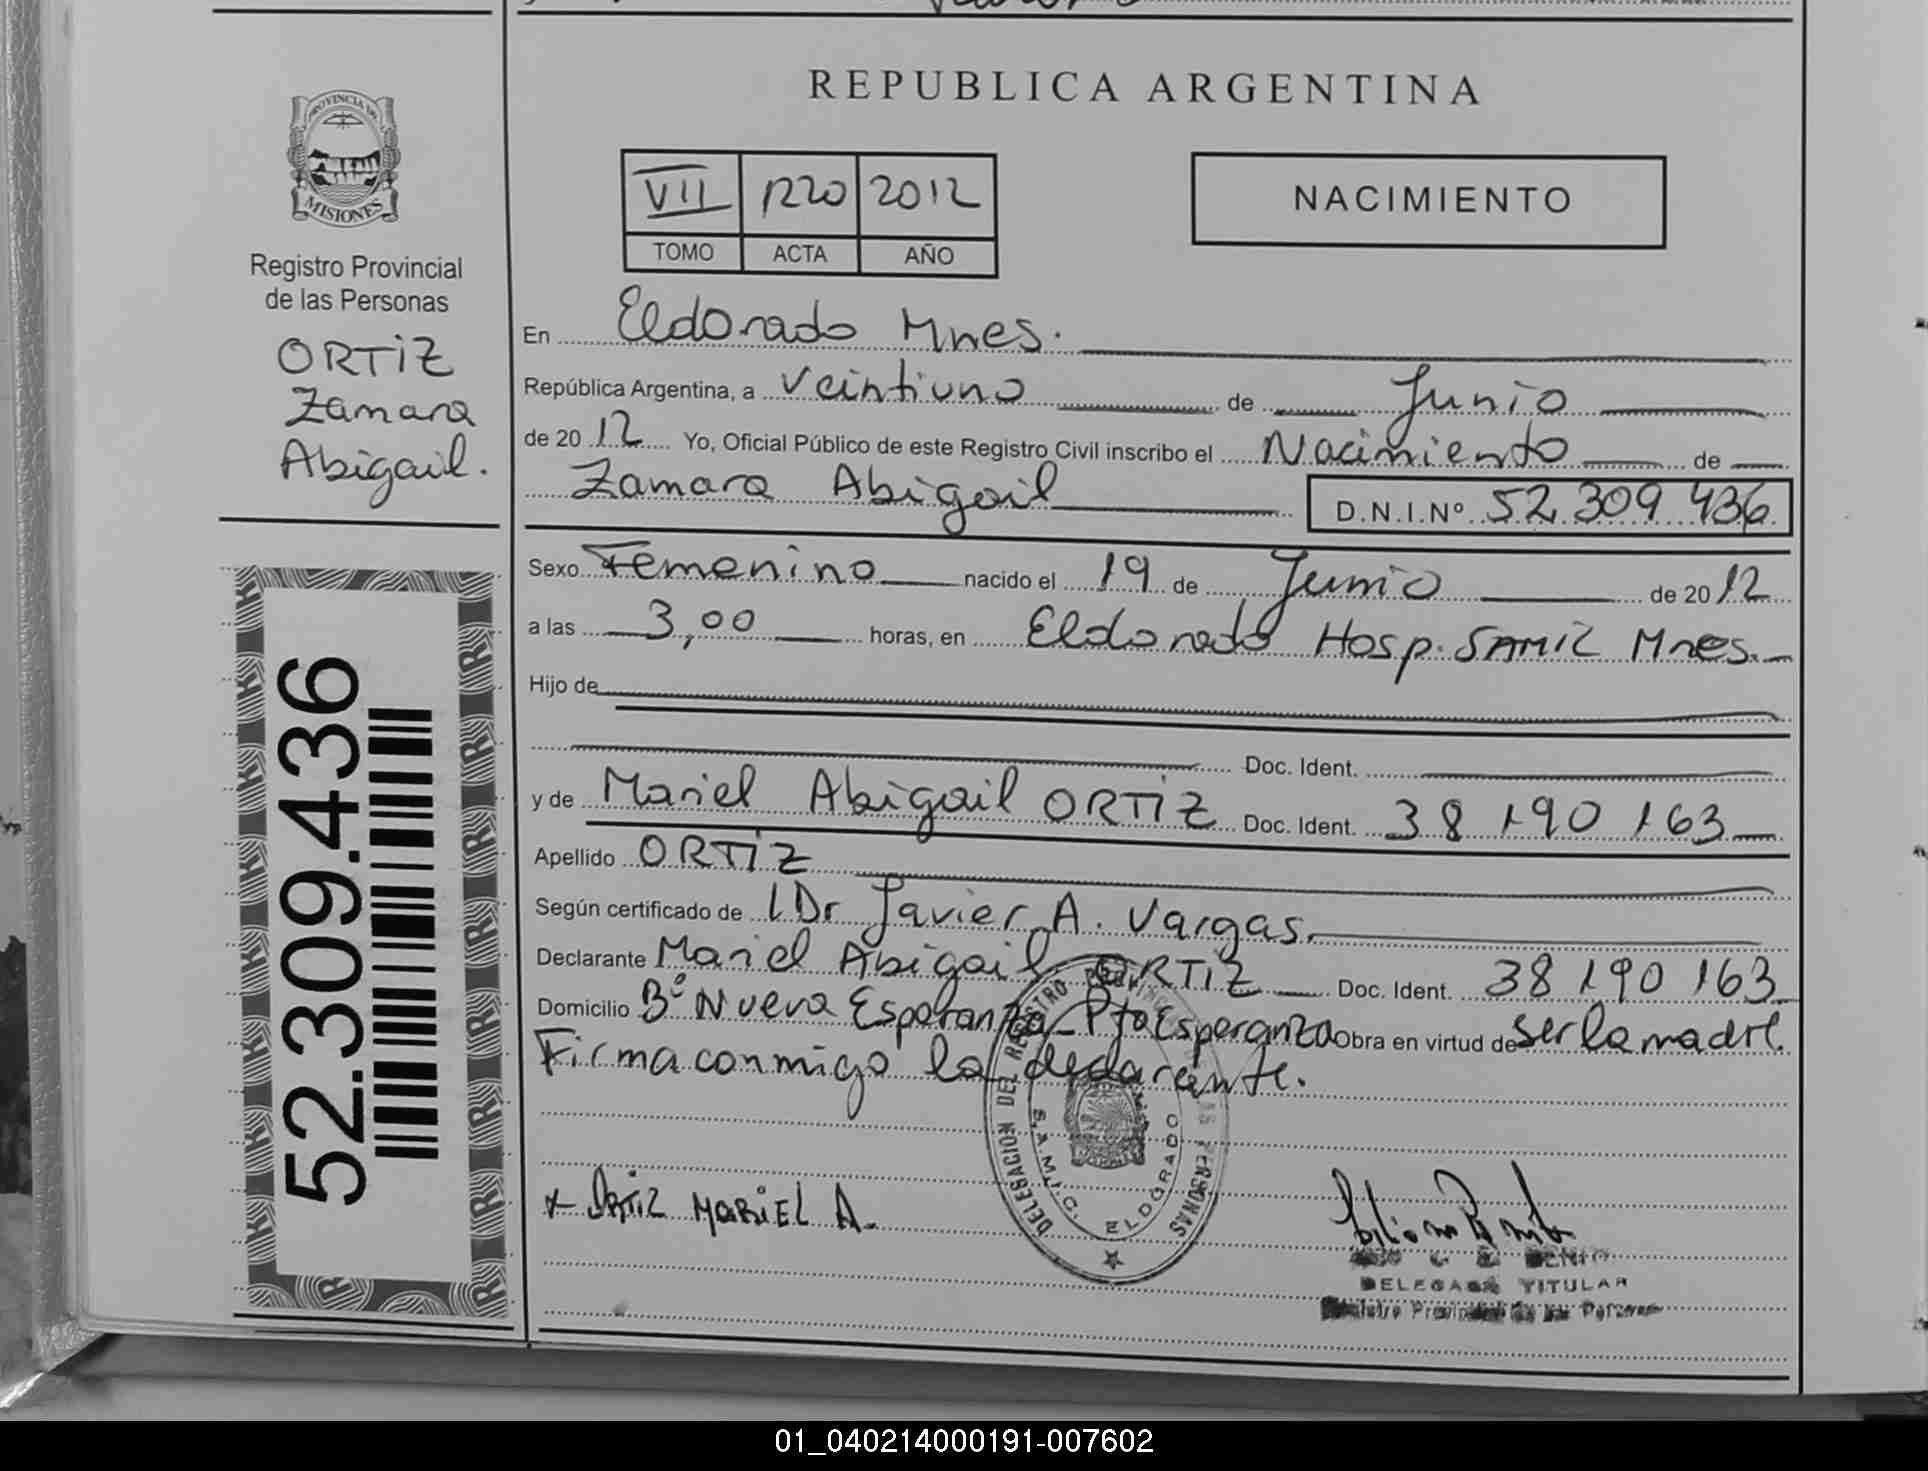 REPUBLICA ARGENTINA
PROVINCIA DE
MISIONES
Registro Provincial
de las Personas
ORTIZ
Zamara
Abigail.
52.309.436
VII 1220 2012
TOMO ACTA AÑO
NACIMIENTO
En Eldorado Mnes.
República Argentina, a Veintiuno de Junio
de 2012 Yo, Oficial Público de este Registro Civil inscribo el Nacimiento de
Zamara Abigail D.N.I.Nº 52 309 436
Sexo Femenino nacido el 19 de Junio de 2012
a las 3,00 horas, en Eldorado Hosp. SAMIC Mnes.
Hijo de
Doc. Ident.
y de Mariel Abigail ORTIZ Doc. Ident. 38 190 163
Apellido ORTIZ
Según certificado de Dr Javier A. Vargas.
Declarante Mariel Abigail ORTIZ Doc. Ident. 38 190 163
Domicilio Bº Nueva Esperanza - Pto Esperanza Obra en virtud de ser la madre.
Firma conmigo la declarante.
DELEGACION DEL REGISTRO PROVINCIAL DE LAS PERSONAS
S.A.M.I.C. ELDORADO
x ORTIZ MARIEL A.
DELEGADA TITULAR
Registro Provincial de las Personas
01_040214000191-007602